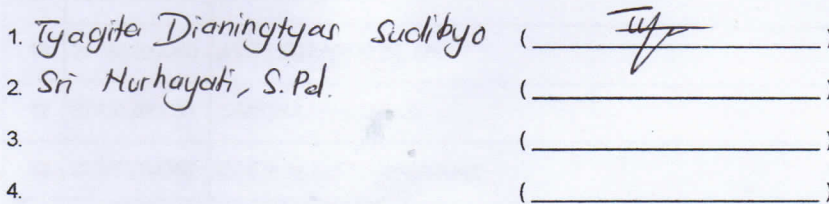 1. Tyagita Dianingtyas Sudibyo (____________)
2. Sri Nurhayati, S.Pd. (____________)
3. (____________)
4. (____________)